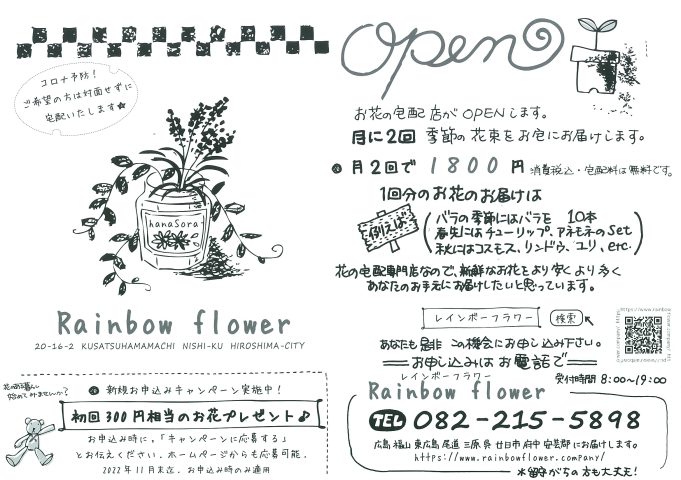 コロナ予防!
ご希望の方は対面せずに
宅配いたします★
hanaSora
Rainbow flower
20-16-2 KUSATSUHAMAMACHI NISHI-KU HIROSHIMA-CITY
花のある暮らし
始めてみませんか?
新規お申込みキャンペーン実施中!
初回300円相当のお花プレゼント♪
お申込み時に。「キャンペーンに応募する」
とお伝えください。ホームページからも応募可能。
2022年11月末迄。お申込み時のみ適用
Open
お花の宅配店がOPENします。
月に2回 季節の花束をお宅にお届けします。
月2回で 1800円 消費税込・宅配料は無料です。
1回分のお花のお届けは
例えば
バラの季節にはバラを 10本
春先にはチューリップ、アネモネのSet
秋にはコスモス、リンドウ、ユリ、etc.
花の宅配専門店なので、新鮮なお花をより安くより多く
あなたのお手元にお届けしたいと思っています。
レインボーフラワー 検索
あなたも是非 この機会にお申し込み下さい。
お申し込みは お電話で
レインボーフラワー
Rainbow flower
受付時間 8:00~19:00
TEL 082-215-5898
広島 福山 東広島 尾道 三原 呉 廿日市 府中 安芸郡 にお届けします。
https://www.rainbowflower.company/
※留守がちの方も大丈夫!